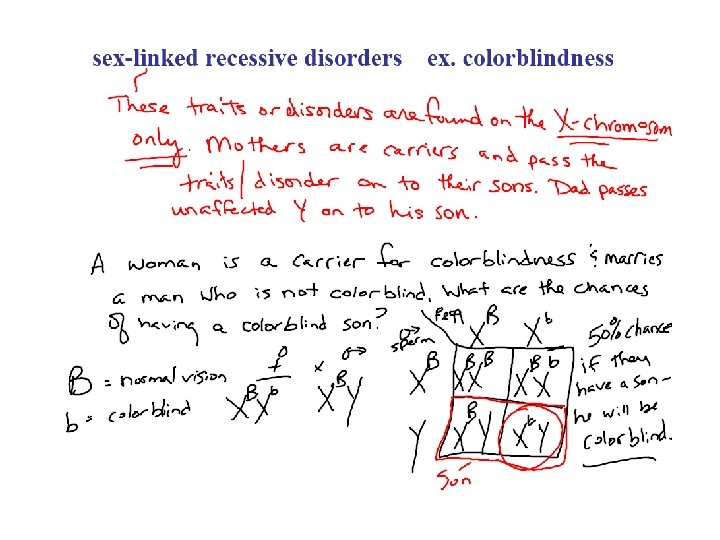 sex-linked recessive disorders ex. colorblindness
These traits or disorders are found on the X-chromosom
only. Mothers are carriers and pass the
traits/disorder on to their sons. Dad passes
unaffected Y on to his son.
A woman is a carrier for colorblindness & marries
a man who is not colorblind. What are the chances
of having a colorblind son?
B = normal vision
b = colorblind
♀ x ♂
X^B X^b X^B Y
♂ sperm
♀ egg
X^B X^b
X^B X^B X^B X^B X^b
Y X^B Y X^b Y
Son
50% chance
if they
have a son-
he will be
colorblind.